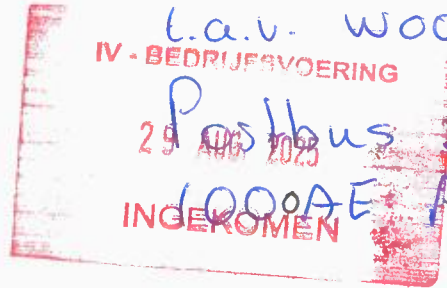 t.a.v. WOO
IV - BEDRIJFSVOERING
Postbus
29 AUG 2025
1000AE
INGEKOMEN